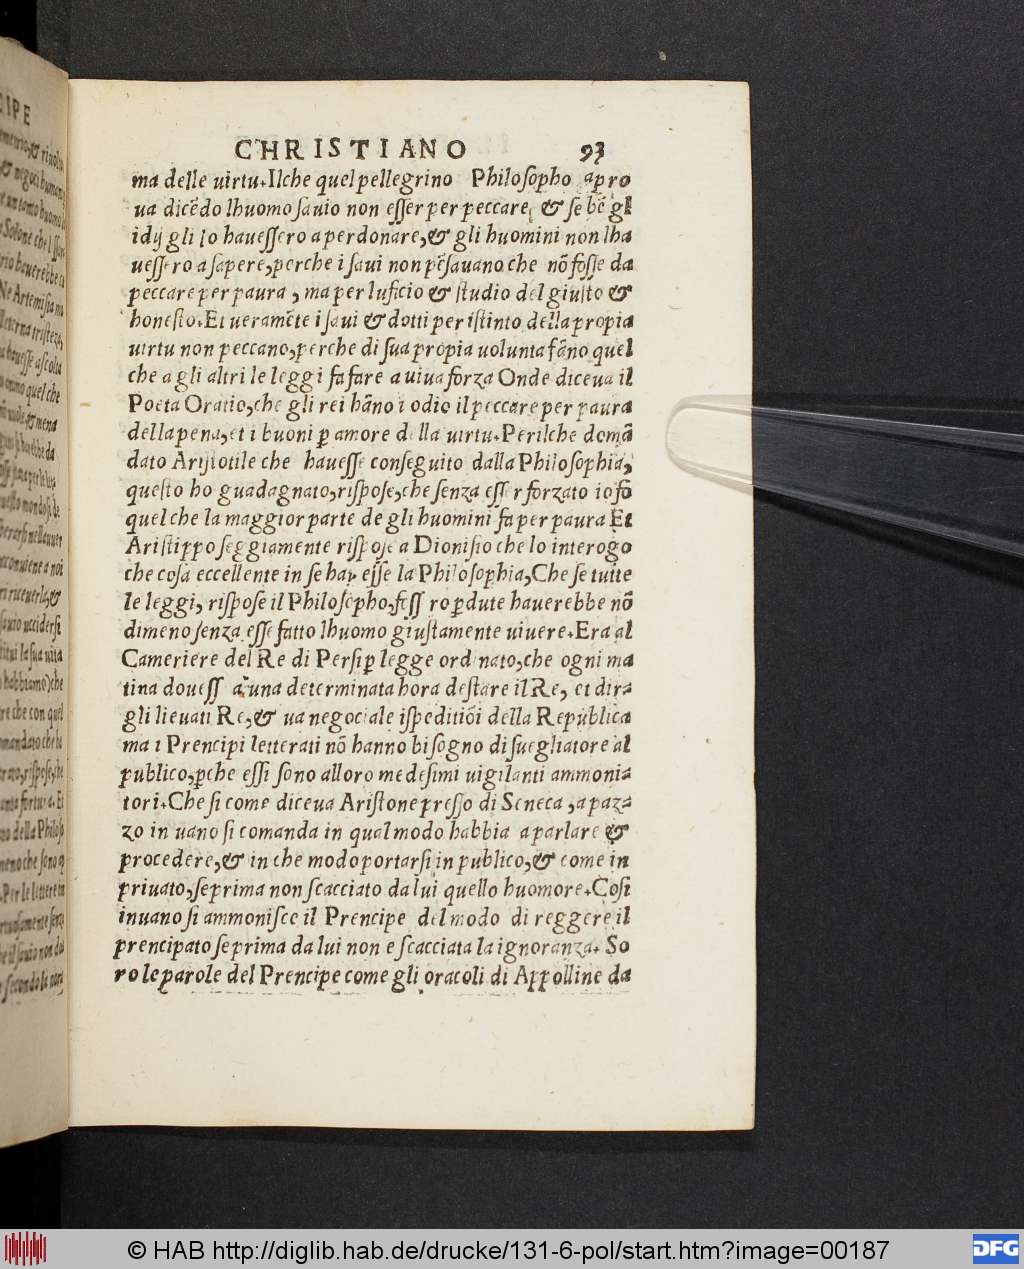 CHRISTIANO 93
ma delle uirtu. Ilche quel pellegrino Philosopho apro
ua dicẽdo lhuomo sauio non esser per peccare, & se bẽ gl
idij gli lo hauessero a perdonare, & gli huomini non lha
uessero a sapere, perche i saui non pẽsauano che nõ fosse da
peccare per paura, ma per luficio & studio del giusto &
honesto. Et ueramẽte i saui & dotti per istinto della propia
uirtu non peccano, perche di sua propia uolunta fãno quel
che a gli altri le leggi fa fare a uiua forza Onde diceua il
Poeta Oratio, che gli rei hãno i odio il peccare per paura
della pena, et i buoni ꝑ amore della uirtu. Perilche domã
dato Aristotile che hauesse conseguito dalla Philosophia,
questo ho guadagnato, rispose, che senza ess r forzato io fo
quel che la maggior parte de gli huomini fa per paura Et
Aristippo seggiamente rispose a Dionisio che lo interogo
che cosa eccellente in se hauesse la Philosophia, Che se tutte
le leggi, rispose il Philosopho, fess ro ꝑdute hauerebbe nõ
dimeno senza esse fatto lhuomo giustamente uiuere. Era al
Cameriere del Re di Persi ꝑ legge ord nato, che ogni ma
tina douess a una determinata hora destare il Re, et dira
gli lieuati Re, & ua negociale ispeditiõi della Republica
ma i Prencipi letterati nõ hanno bisogno di suegliatore al
publico, ꝑche essi sono alloro medesimi uigilanti ammonia
tori. Che si come diceua Aristone presso di Seneca, a paza
zo in uano si comanda in qual modo habbia a parlare &
procedere, & in che modo portarsi in publico, & come in
priuato, se prima non scacciato da lui quello huomore. Cosi
inuano si ammonisce il Prencipe del modo di reggere il
prencipato se prima da lui non e scacciata la ignoranza. So
ro le parole del Prencipe come gli oracoli di Appolline da
© HAB http://diglib.hab.de/drucke/131-6-pol/start.htm?image=00187
DFG